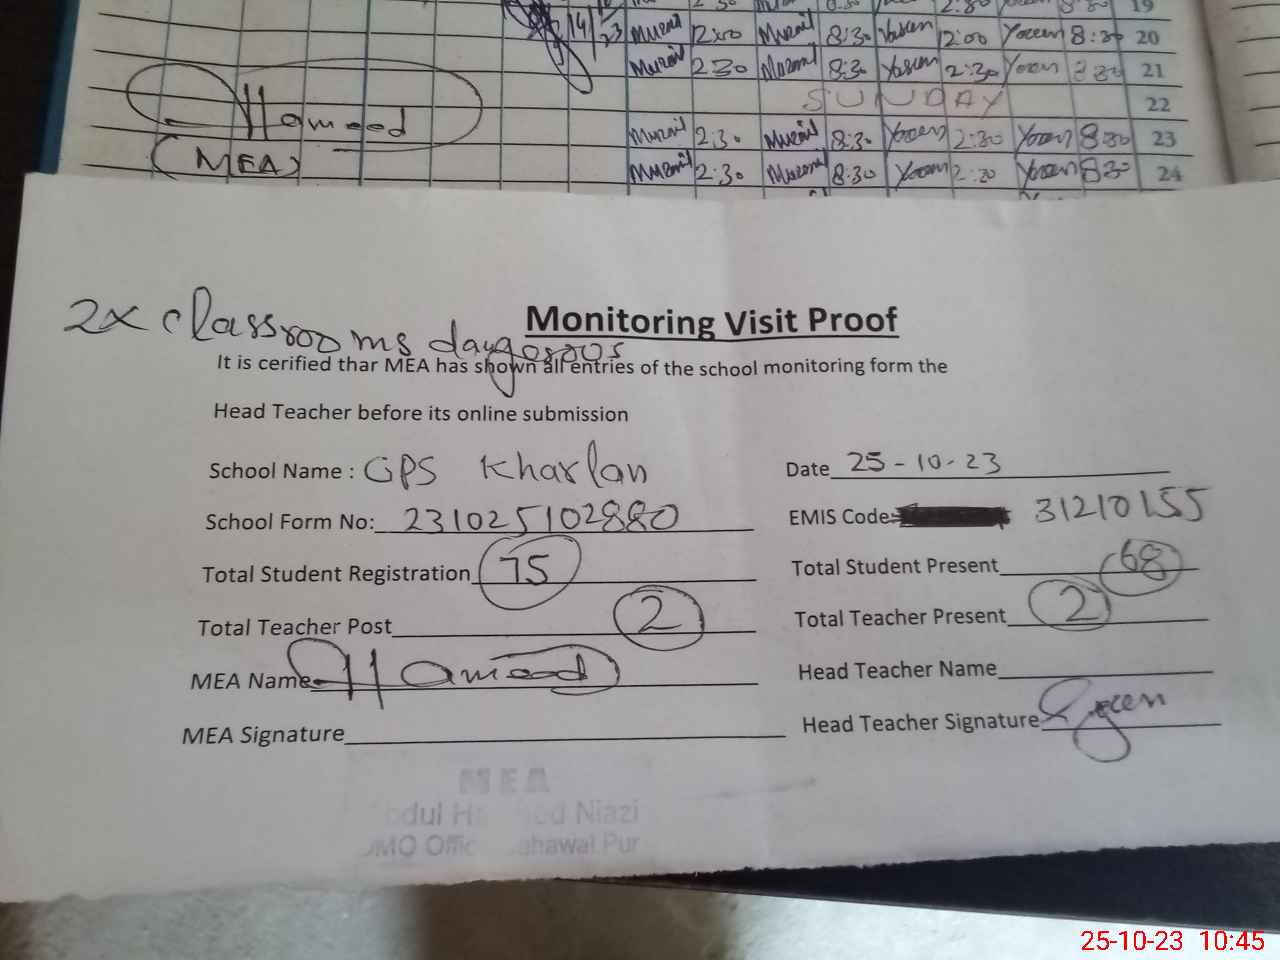 14/ 23 Muzmil 2:00 Muzmil 8:30 Yaseen 2:00 Yaseen 8:30 20
Muzmil 2:30 Muzmil 8:30 Yaseen 2:30 Yaseen 8:30 21
SUNDAY 22
Hameed Muzmil 2:30 Muzmil 8:30 Yaseen 2:30 Yaseen 8:30 23
(MEA) Muzmil 2:30 Muzmil 8:30 Yaseen 2:30 Yaseen 8:30 24
2x classrooms dangerous
Monitoring Visit Proof
It is cerified thar MEA has shown all entries of the school monitoring form the
Head Teacher before its online submission
School Name : GPS Kharlan Date 25-10-23
School Form No: 231025102880 EMIS Code: 31210155
Total Student Registration 75 Total Student Present 68
Total Teacher Post 2 Total Teacher Present 2
MEA Name Hameed Head Teacher Name
MEA Signature Head Teacher Signature Yaseen
MEA
Niazi
DMO Office Bahawal Pur
25-10-23 10:45